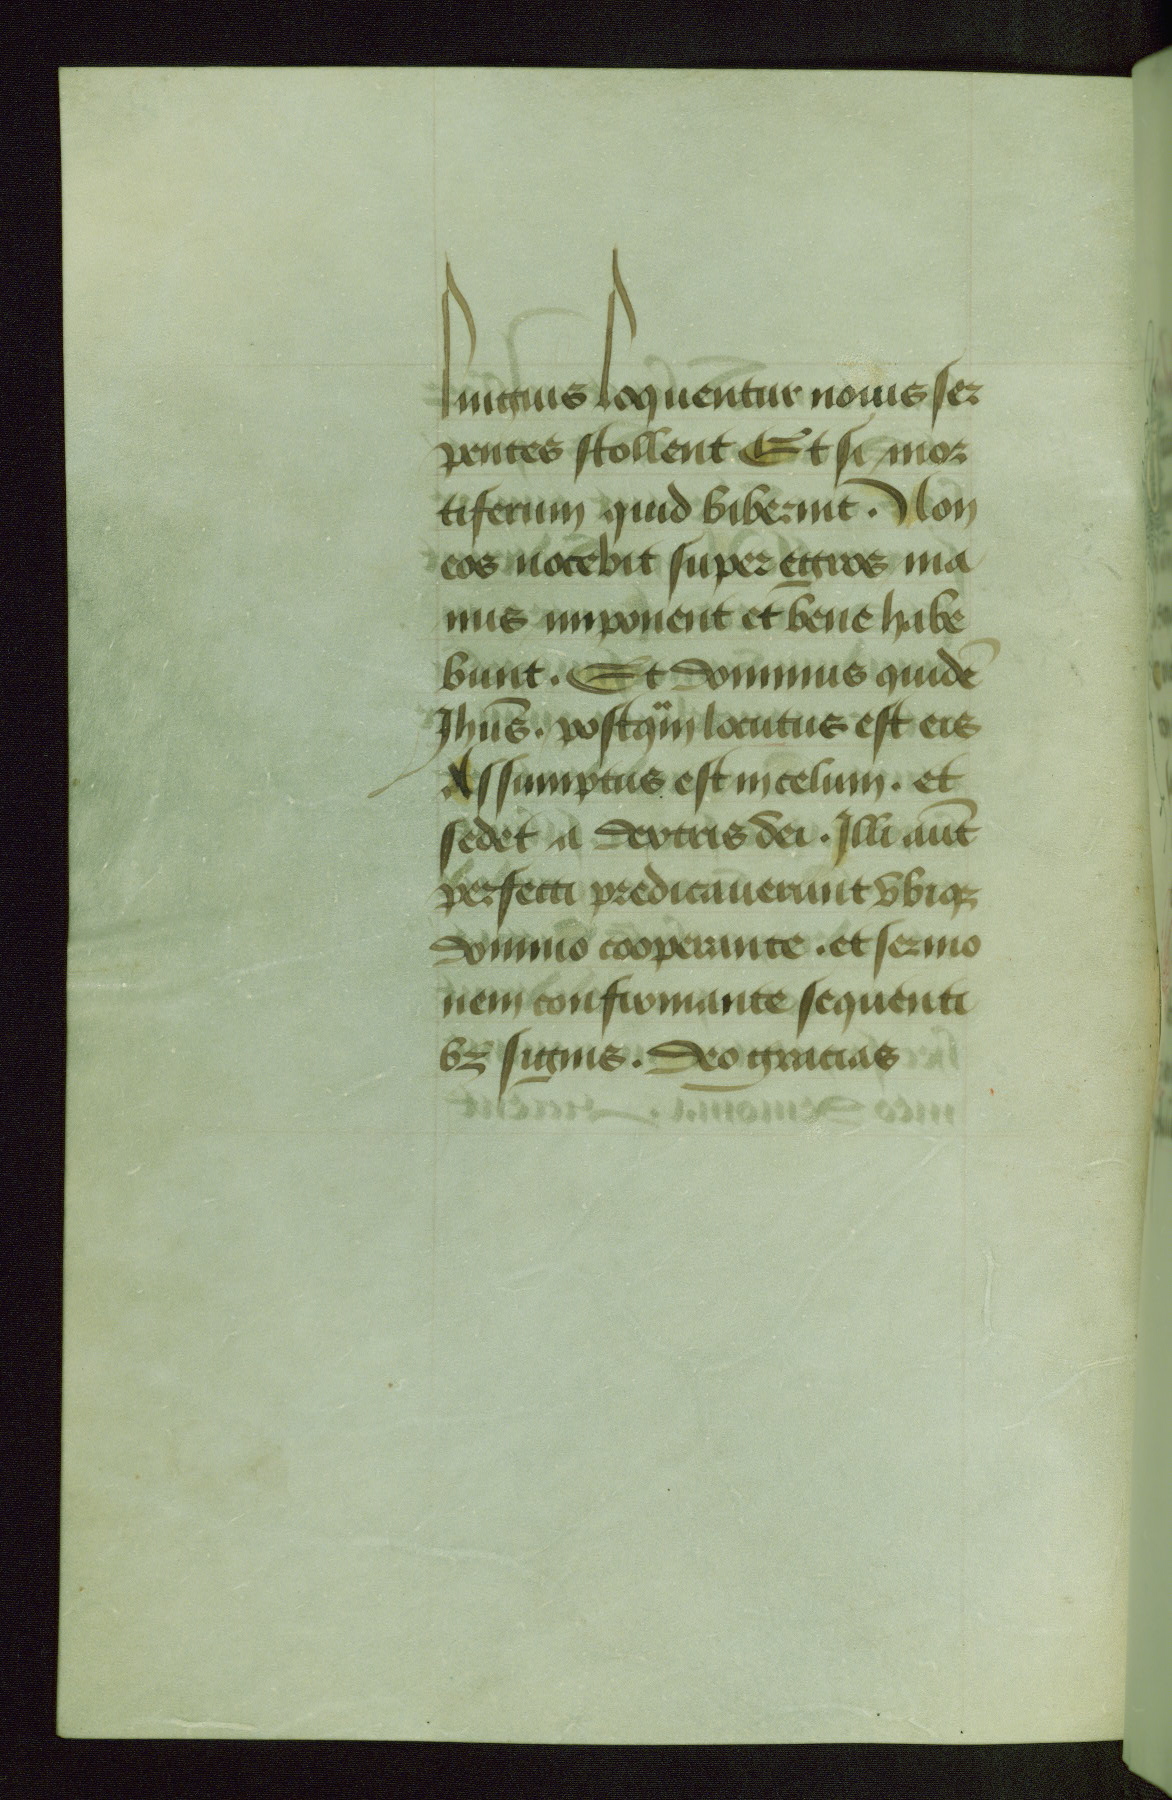 linguis loquentur nouis ser
pentes stollent Et si mor
tiferum quid biberint. Non
eos nocebit super egros ma
nus imponent et bene habe
bunt. Et dominus quidē
Jhūs. postqͣm locutus est eis
Assumptus est in celum. et
sedet a dextris dei. Illi aūt
perfecti predicauerunt vbiqꝫ
domino cooperante. et sermo
nem confirmante sequenti
bꝫ signis. Deo gracias